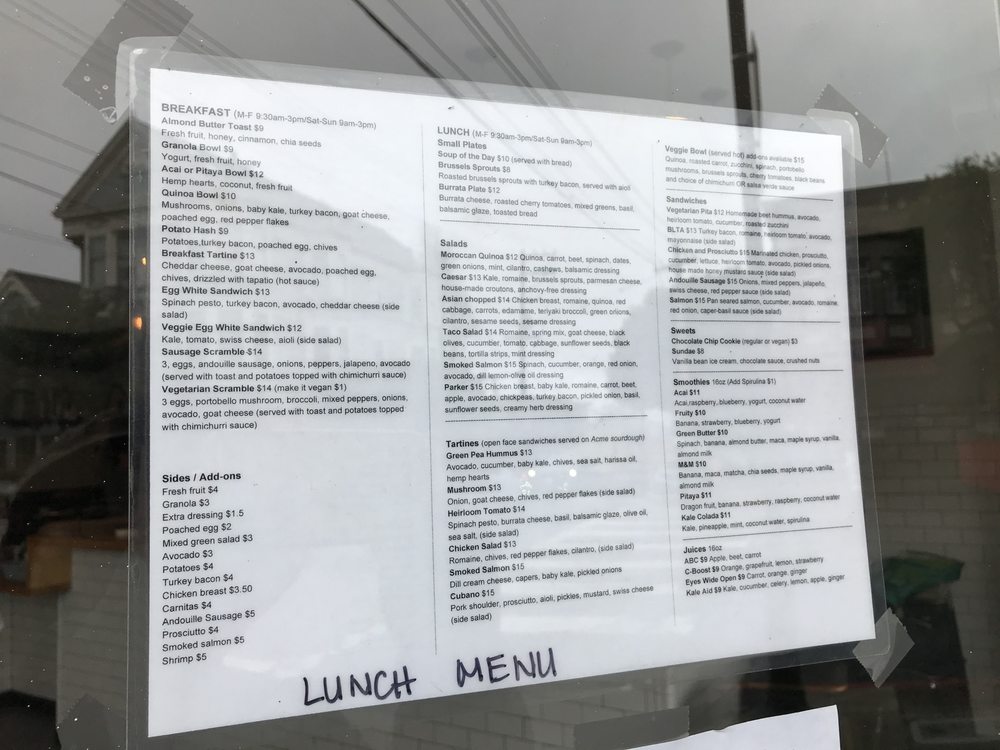 BREAKFAST (M-F 9:30am-3pm/Sat-Sun 9am-3pm)
Almond Butter Toast $9
Fresh fruit, honey, cinnamon, chia seeds
Granola Bowl $9
Yogurt, fresh fruit, honey
Acai or Pitaya Bowl $12
Hemp hearts, coconut, fresh fruit
Quinoa Bowl $10
Mushrooms, onions, baby kale, turkey bacon, goat cheese,
poached egg, red pepper flakes
Potato Hash $9
Potatoes,turkey bacon, poached egg, chives
Breakfast Tartine $13
Cheddar cheese, goat cheese, avocado, poached egg,
chives, drizzled with tapatio (hot sauce)
Egg White Sandwich $13
Spinach pesto, turkey bacon, avocado, cheddar cheese (side
salad)
Veggie Egg White Sandwich $12
Kale, tomato, swiss cheese, aioli (side salad)
Sausage Scramble $14
3, eggs, andouille sausage, onions, peppers, jalapeno, avocado
(served with toast and potatoes topped with chimichurri sauce)
Vegetarian Scramble $14 (make it vegan $1)
3 eggs, portobello mushroom, broccoli, mixed peppers, onions,
avocado, goat cheese (served with toast and potatoes topped
with chimichurri sauce)
Sides / Add-ons
Fresh fruit $4
Granola $3
Extra dressing $1.5
Poached egg $2
Mixed green salad $3
Avocado $3
Potatoes $4
Turkey bacon $4
Chicken breast $3.50
Carnitas $4
Andouille Sausage $5
Prosciutto $4
Smoked salmon $5
Shrimp $5
LUNCH (M-F 9:30am-3pm/Sat-Sun 9am-3pm)
Small Plates
Soup of the Day $10 (served with bread)
Brussels Sprouts $8
Roasted brussels sprouts with turkey bacon, served with aioli
Burrata Plate $12
Burrata cheese, roasted cherry tomatoes, mixed greens, basil,
balsamic glaze, toasted bread
Salads
Moroccan Quinoa $12 Quinoa, carrot, beet, spinach, dates,
green onions, mint, cilantro, cashews, balsamic dressing
Caesar $13 Kale, romaine, brussels sprouts, parmesan cheese,
house-made croutons, anchovy-free dressing
Asian chopped $14 Chicken breast, romaine, quinoa, red
cabbage, carrots, edamame, teriyaki broccoli, green onions,
cilantro, sesame seeds, sesame dressing
Taco Salad $14 Romaine, spring mix, goat cheese, black
olives, cucumber, tomato, cabbage, sunflower seeds, black
beans, tortilla strips, mint dressing
Smoked Salmon $15 Spinach, cucumber, orange, red onion,
avocado, dill lemon-olive oil dressing
Parker $15 Chicken breast, baby kale, romaine, carrot, beet,
apple, avocado, chickpeas, turkey bacon, pickled onion, basil,
sunflower seeds, creamy herb dressing
Tartines (open face sandwiches served on Acme sourdough)
Green Pea Hummus $13
Avocado, cucumber, baby kale, chives, sea salt, harissa oil,
hemp hearts
Mushroom $13
Onion, goat cheese, chives, red pepper flakes (side salad)
Heirloom Tomato $14
Spinach pesto, burrata cheese, basil, balsamic glaze, olive oil,
sea salt, (side salad)
Chicken Salad $13
Romaine, chives, red pepper flakes, cilantro, (side salad)
Smoked Salmon $15
Dill cream cheese, capers, baby kale, pickled onions
Cubano $15
Pork shoulder, prosciutto, aioli, pickles, mustard, swiss cheese
(side salad)
Veggie Bowl (served hot) add-ons available $15
Quinoa, roasted carrot, zucchini, spinach, portobello
mushrooms, brussels sprouts, cherry tomatoes, black beans
and choice of chimichurri OR salsa verde sauce
Sandwiches
Vegetarian Pita $12 Homemade beet hummus, avocado,
heirloom tomato, cucumber, roasted zucchini
BLTA $13 Turkey bacon, romaine, heirloom tomato, avocado,
mayonnaise (side salad)
Chicken and Prosciutto $15 Marinated chicken, prosciutto,
cucumber, lettuce, heirloom tomato, avocado, pickled onions,
house made honey mustard sauce (side salad)
Andouille Sausage $15 Onions, mixed peppers, jalapeño,
swiss cheese, red pepper sauce (side salad)
Salmon $15 Pan seared salmon, cucumber, avocado, romaine,
red onion, caper-basil sauce (side salad)
Sweets
Chocolate Chip Cookie (regular or vegan) $3
Sundae $8
Vanilla bean ice cream, chocolate sauce, crushed nuts
Smoothies 16oz (Add Spirulina $1)
Acai $11
Acai,raspberry, blueberry, yogurt, coconut water
Fruity $10
Banana, strawberry, blueberry, yogurt
Green Butter $10
Spinach, banana, almond butter, maca, maple syrup, vanilla,
almond milk
M&M $10
Banana, maca, matcha, chia seeds, maple syrup, vanilla,
almond milk
Pitaya $11
Dragon fruit, banana, strawberry, raspberry, coconut water
Kale Colada $11
Kale, pineapple, mint, coconut water, spirulina
Juices 16oz
ABC $9 Apple, beet, carrot
C-Boost $9 Orange, grapefruit, lemon, strawberry
Eyes Wide Open $9 Carrot, orange, ginger
Kale Aid $9 Kale, cucumber, celery, lemon, apple, ginger
LUNCH MENU